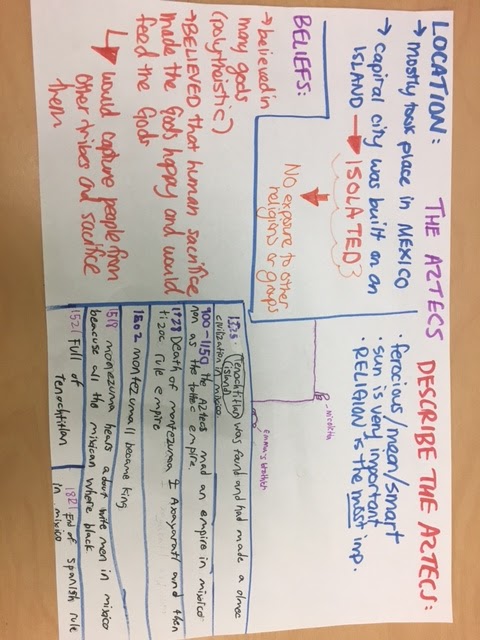 THE AZTECS
LOCATION:
→ mostly took place in MEXICO
→ capital city was built on an
ISLAND → ISOLATED
NO exposure to other
religions or groups
DESCRIBE THE AZTECS:
· ferocious/mean/smart
· sun is very important
· RELIGION is the most imp.
BELIEFS:
→ believed in
many gods
(polytheistic)
→ BELIEVED that human sacrifice
made the Gods happy and would
feed the Gods
↳ would capture people from
other tribes and sacrifice
them
emmas brother
1325: Tenochtitlan was found and had made a olmec
(island)
civilization in mixico
900-1150 the Aztecs mad an empire in mixico
non as the toltec empire.
Death of montezuma I Axayaratl and then
tizoc rule empire
1502 montezumall became king
1518 montezuma hears about wite men in mixico
beacuse all the mixican where black
1521 Full of
Tenochtitlan
1821 End of spanish rule
in mixico